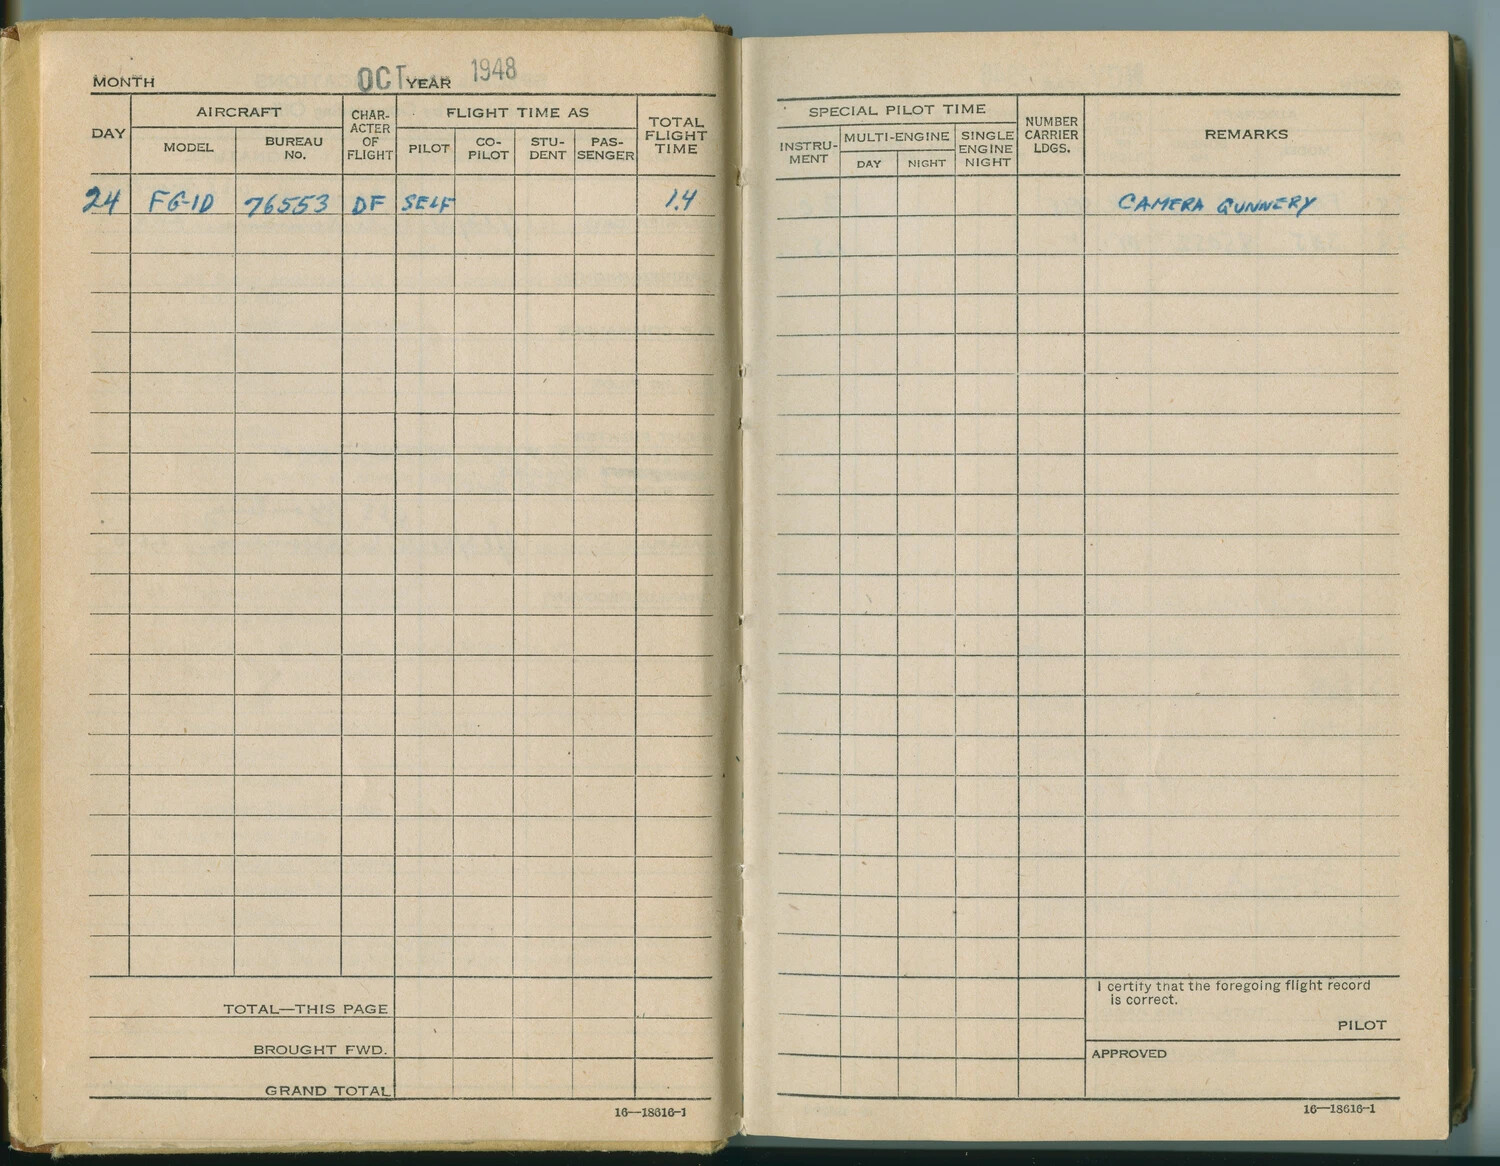 MONTH OCT YEAR 1948
DAY
AIRCRAFT
MODEL
BUREAU
NO.
CHAR-
ACTER
OF
FLIGHT
FLIGHT TIME AS
PILOT
CO-
PILOT
STU-
DENT
PAS-
SENGER
TOTAL
FLIGHT
TIME
24 FG-1D 76553 DF SELF 1.4
TOTAL—THIS PAGE
BROUGHT FWD.
GRAND TOTAL
16—18616-1
SPECIAL PILOT TIME
INSTRU-
MENT
MULTI-ENGINE
DAY
NIGHT
SINGLE
ENGINE
NIGHT
NUMBER
CARRIER
LDGS.
REMARKS
CAMERA GUNNERY
I certify that the foregoing flight record
is correct.
PILOT
APPROVED
16—18616-1